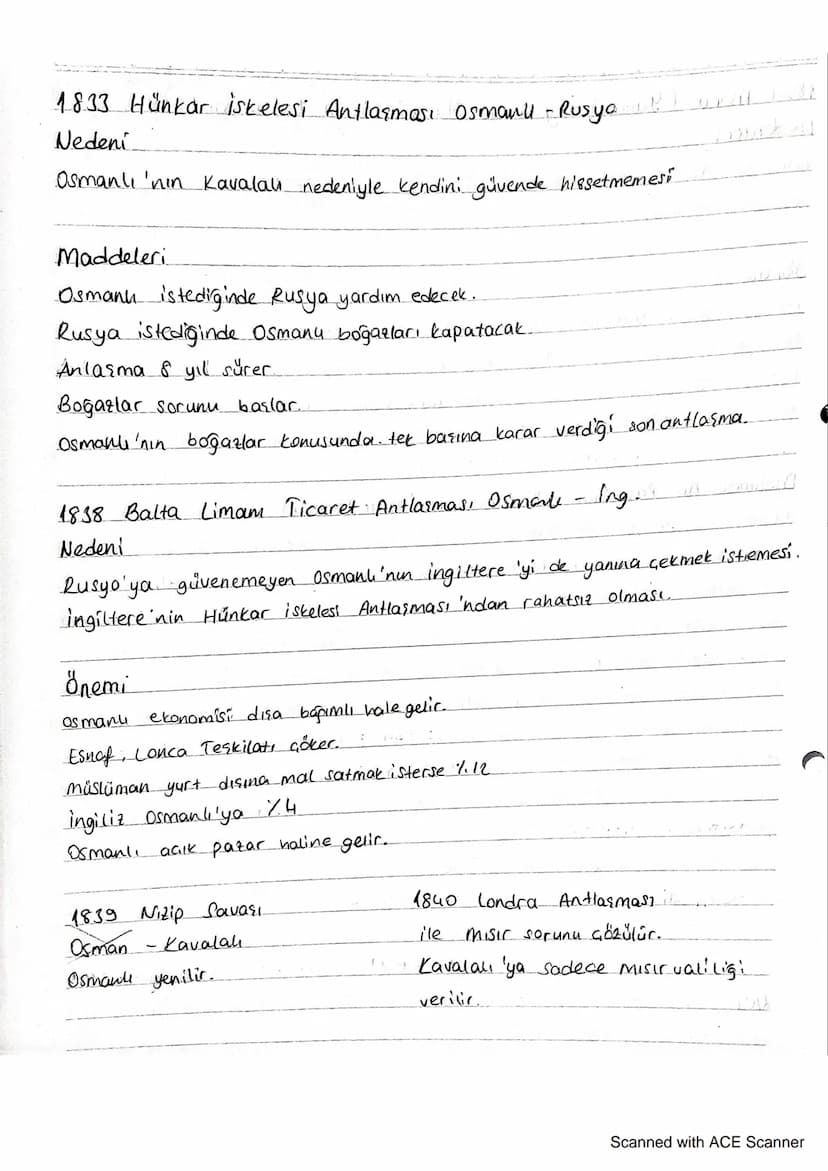 1833 Hünkar iskelesi Antlaşması Osmanlı - Rusya
Nedeni
Osmanlı'nın Kavalalı nedeniyle kendini güvende hissetmemesi
Maddeleri
Osmanlı istediğinde Rusya yardım edecek.
Rusya istediğinde Osmanlı boğazları kapatacak.
Anlaşma 8 yıl sürer
Boğazlar sorunu başlar.
Osmanlı'nın boğazlar konusunda tek başına karar verdiği son antlaşma.
1838 Balta Limanı Ticaret Antlaşması Osmanlı - İng.
Nedeni
Rusya'ya güvenemeyen Osmanlı'nın ingiltere'yi de yanına çekmek istemesi.
İngiltere'nin Hünkar iskelesi Antlaşması'ndan rahatsız olması.
Önemi
Osmanlı ekonomisi dışa bağımlı hale gelir.
Esnaf, Lonca Teşkilatı çöker.
Müslüman yurt dışına mal satmak isterse %12
İngiliz Osmanlı'ya %4
Osmanlı açık pazar haline gelir.
1839 Nizip Savaşı
Osman - Kavalalı
Osmanlı yenilir.
1840 Londra Antlaşması
ile Mısır sorunu çözülür.
Kavalalı'ya sadece Mısır valiliği
verilir.
Scanned with ACE Scanner